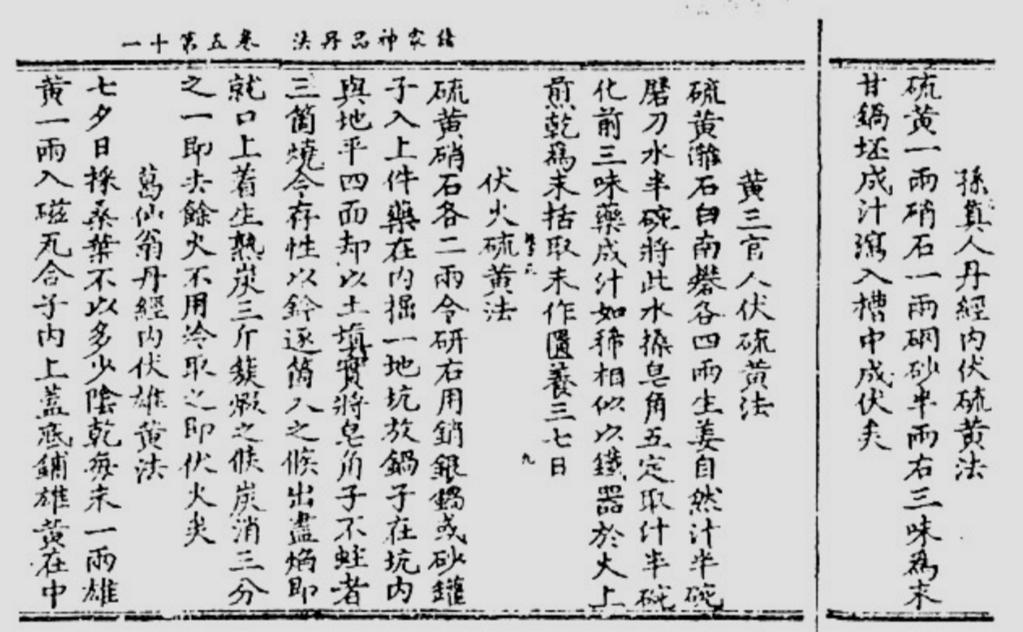 孫真人丹經內伏硫黃法
硫黃一兩硝石一兩硇砂半兩右三味為末
甘鍋坯成汁瀉入槽中成伏矣
黃三官人伏硫黃法
硫黃灉石白南礬各四兩生姜自然汁半碗
磨刀水半碗將此水搡皂角五定取汁半碗
化前三味藥成汁如稀相似以鐵器於火上
煎乾為末括取末作匱養三七日
伏火硫黃法
硫黃硝石各二兩令研右用銷銀鍋或砂罐
子入上件藥在內掘一地坑放鍋子在坑內
與地平四面却以土填實將皂角子不蛀者
三箇燒令存性以鈐逐箇入之候出盡焰即
就口上着生熟炭三斤簇煆之候炭消三分
之一即去餘火不用冷取之即伏火矣
葛仙翁丹經內伏雄黃法
七夕日採桑葉不以多少陰乾每末一兩雄
黃一兩入磁瓦合子內上蓋底鋪雄黃在中
諸家神品丹法 卷五第十一
九